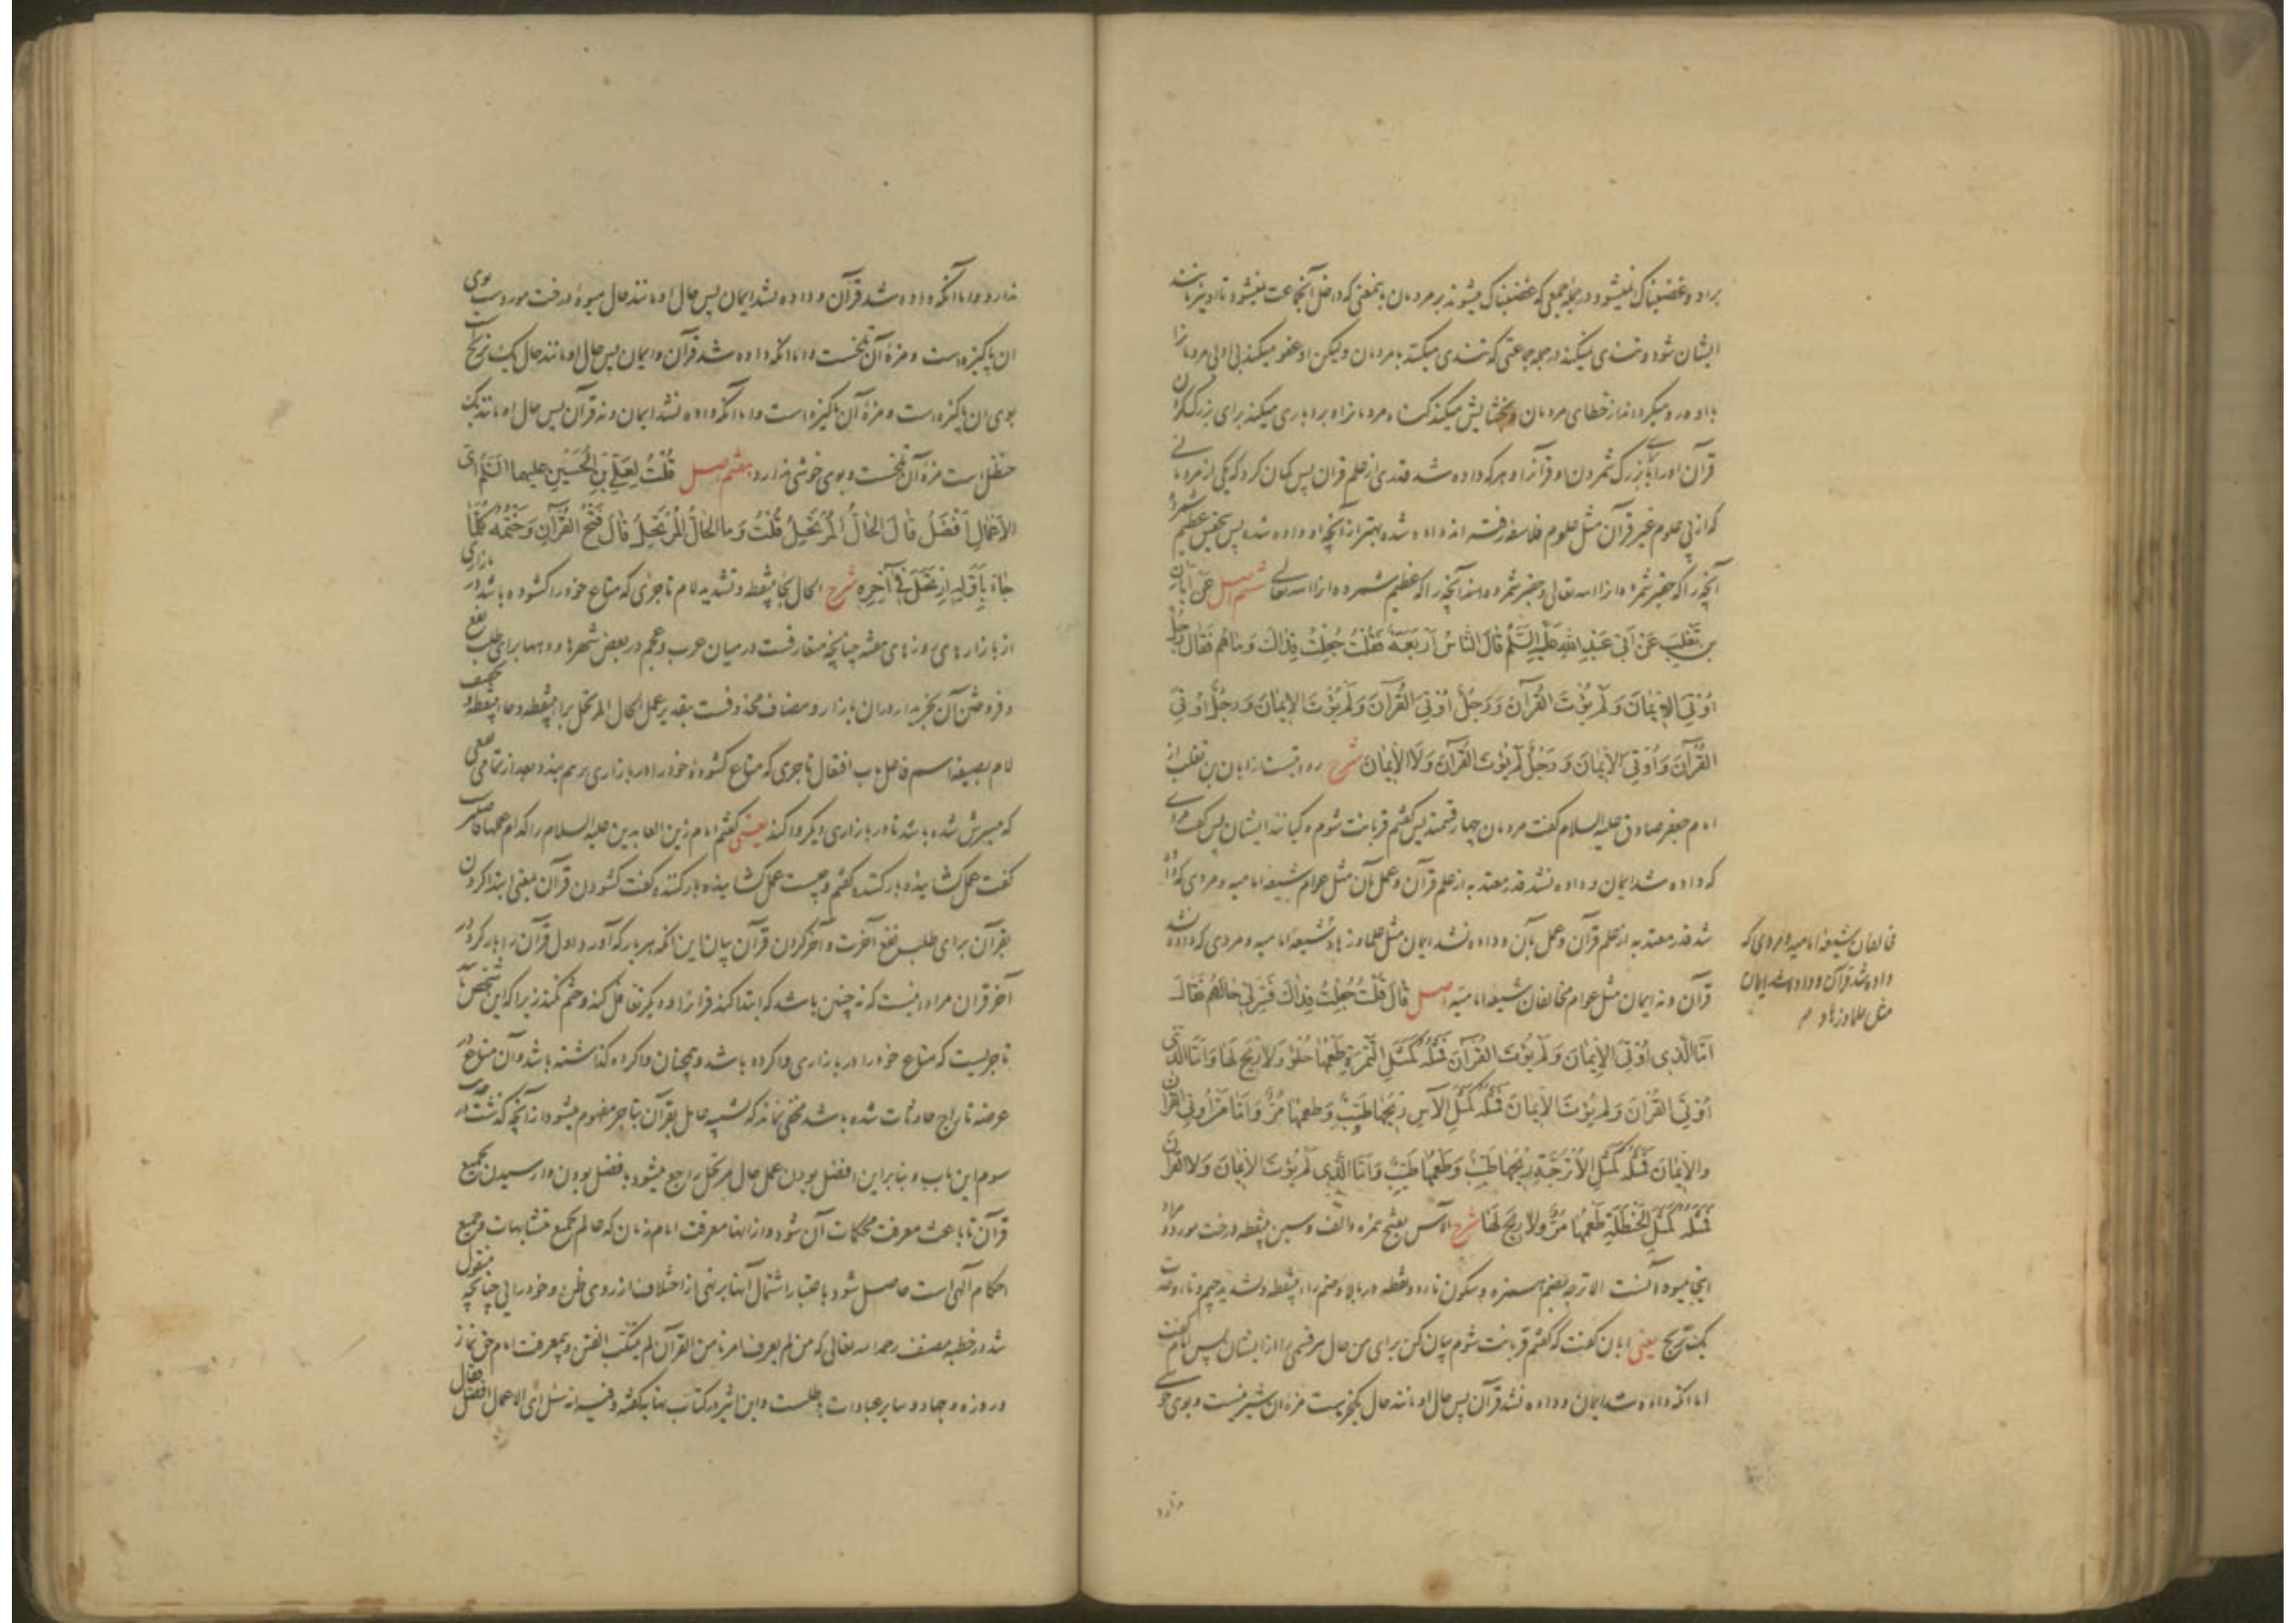 براو و غضبناک نمیشود در جمله جمعی که غضبناک میشوند بر مردمان بمعنی که داخل آنجماعت نمیشود تا او نیز مانند
ایشان شود و تندی نمیکند در جمله جماعتی که تندی میکنند با مردمان ولیکن او عفو میکند بی ادبی مردمانرا
با او و رو میگرداند از خطای مردمان و بخشایش میکند گناه مردمانرا و بردباری میکند برای بزرگ کردن
قرآن او را یا برای بزرگ شمردن او قرآنرا و هر که داده شد قدری از علم قرآن پس گمان کرد که یکی از مردمانی
که از پی علوم غیر قرآن مثل علوم فلاسفه رفته اند داده شده بهتر از آنچه او داده شده پس بتحقیق عظیم شمرده
آنچه را که حقیر شمرده انرا الله تعالی و حقیر شمرده است آنچه را که عظیم شمرده انرا الله تعالی ششم اصل عَنْ أَبَانِ
بنِ تَغْلِبَ عَنْ أَبي عَبْدِ اللهِ عَلَيْهِ السَّلَمُ قَالَ النَّاسُ أَرْبَعَةٌ فَقُلْتُ جُعِلْتُ فِدَاكَ وَمَا هُمْ فَقَالَ رَجُلٌ
أُوتِيَ الإِيمَانَ وَلَمْ يُؤْتَ القُرْآنَ وَرَجُلٌ أُوتِيَ القُرْآنَ وَلَمْ يُؤْتَ الإيمَانَ وَرَجُلٌ أُوتِيَ
القُرْآنَ وَأُوتِيَ الإيمَانَ وَ رَجُلٌ لَمْ يُؤْتَ القُرْآنَ وَلَا الإيمَانَ شرح روایتست از ابان بن تغلب از
امام جعفر صادق علیه السلام گفت مردمان چهار قسمند پس گفتم قربانت شوم و کیانند ایشان پس گفت مردی
که داده شد ایمان و داده نشد قدر معتد به از علم قرآن و عمل بآن مثل عوام شیعه امامیه و مردی که داده
شد قدر معتد به از علم قرآن و عمل بآن و داده نشد ایمان مثل علما و زهاد شیعه امامیه و مردی که داده نشد
قرآن و نه ایمان مثل عوام مخالفان شیعه امامیه اصل قَالَ قُلْتُ جُعِلْتُ فِدَاكَ فَسِّرْ لِي حَالَهُمْ فَقَالَ
أَمَّا الَّذِي أُوْتِيَ الإيمَانَ وَلَمْ يُؤْتَ القُرْآنَ فَمَثَلُهُ كَمَثَلِ التَّمْرَةِ طَعْمُهَا حُلْوٌ وَلَا رِيحَ لَهَا وَأَمَّا الَّذِي
أُوتِيَ القُرْآنَ وَلَمْ يُؤْتَ الإيمَانَ فَمَثَلُهُ كَمَثَلِ الآسِ رِيْحُهَا طَيِّبٌ وَطَعْمُهَا مُرٌّ وَأَمَّا مَنْ أُوتِيَ القُرْآنَ
والإيمَانَ فَمَثَلُهُ كَمَثَلِ الأُتْرُجَّةِ رِيْحُهَا طَيِّبٌ وَطَعْمُهَا طَيِّبٌ وَأَمَّا الَّذِي لَمْ يُؤْتَ الإيمَانَ وَلَا القُرْآنَ
فَمَثَلُهُ كَمَثَلِ الحَنْظَلَةِ طَعْمُهَا مُرٌّ وَلَا رِيحَ لَهَا شرح الآس بفتح همزه و الف و سین بینقطه درخت مورد و مراد
اینجا میوه آنست الاترجه بضم همزه و سکون تاء دو نقطه در بالا و ضم راء بینقطه و تشدید جیم و تاء وحدت
یک ترنج یعنی ابان گفت که گفتم قربانت شوم بیان کن برای من حال هر قسمی را از ایشان پس امام گفت
اما آنکه داده شد ایمان و داده نشد قرآن پس حال او مانند حال یکخرماست مزه ان شیرینست و بوی خوشی
ندارد
مخالفان شیعه امامیه و مردی که
داده شد قرآن و داده شد ایمان
مثل علما و زهاد
ندارد و اما آنکه داده شد قرآن و داده نشد ایمان پس حال او مانند حال میوه درخت موردست بوی
ان پاکیزه است و مزه آن تلخست و اما انکه داده شد قرآن و ایمان پس حال او مانند حال یک ترنج است
بوی ان پاکیزه است و مزه آن پاکیزه است و اما آنکه داده نشد ایمان و نه قرآن پس حال او مانند یک
حنظل است مزه آن تلخست و بوی خوشی ندارد هفتم اصل قُلْتُ لِعَلِيِّ بْنِ الحُسَيْنِ عليهما السَّلَمُ أَيُّ
الأَعْمَالِ أَفْضَلُ قَالَ الحَالُّ المُرْتَحِلُ قُلْتُ وَمَا الحَالُّ المُرْتَحِلُ قَالَ فَتْحُ القُرْآنِ وَخَتْمُهُ كُلَّمَا
جَاءَ بِأَوَّلِهِ ارْتَحَلَ فِي آخِرِهِ شرح الحال بحاء بینقطه و تشدید لام تاجری که متاع خود را گشوده باشد در بازاری
از بازارهای روزهای هفته چنانچه متعارفست در میان عرب و عجم در بعض شهرها و دهها برای طلب نفع
و فروختن آن بخریداران ان بازار و مضاف محذوفست بتقدیر عمل الحال المرتحل براء بینقطه و حاء بینقطه و تخفیف
لام بصیغه اسم فاعل باب افتعال تاجری که متاع گشوده خود را در بازاری برهم چیند و بعد از تمامی نفعی
که میسرش شده باشد تا در بازاری دیگر وا کند یعنی گفتم امام زین العابدین علیه السلام را که کدام عملها فاضلتر است
گفت عمل گشاینده بارکننده گفتم و چیست عمل گشاینده بارکننده گفت گشودن قرآن بمعنی ابتدا کردن
بقرآن برای طلب نفع آخرت و آخر کردن قرآن بیان این آنکه هر بار که آورد اول قرآن را بار کرد در
آخر قران مراد اینست که نه چنین باشد که ابتدا کند قرآنرا و دیگر تغافل کند و ختم نکند زیرا که این شخص مانند
تاجریست که متاع خود را در بازاری وا کرده باشد و همچنان وا کرده گذاشته باشد و آن متاع در
عرضه تاراج حادثات شده باشد مخفی نماند که تشبیه حامل بقرآن بتاجر مفهوم میشود از آنچه گذشت در حدیث
سوم این باب و بنابراین افضل بودن عمل حال مرتحل راجع میشود بافضل بودن وارسیدن بجمیع
قرآن تا باعث معرفت محکمات آن شود و از انها معرفت امام زمان که عالم بجمیع متشابهات و جمیع
احکام آلهی است حاصل شود باعتبار اشتمال آنها بر نهی از اختلاف از روی ظن و خودرایی چنانچه منقول
شد در خطبه مصنف رحمه الله تعالی که من لم یعرف امرنا من القرآن لم یتنکب الفتن و بیمعرفت امام حق نماز
و روزه و جهاد و سایر عبادات باطلست و ابن اثیر در کتاب نهایه گفته و فیه انه سئل ای الاعمال افضل فقال